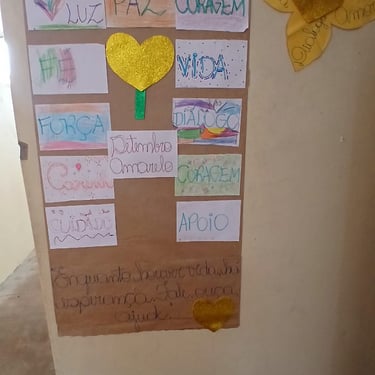 LUZ
PAZ
CORAGEM
VIDA
FORÇA
DIÁLOGO
Setembro
Amarelo
Carinho
CORAGEM
CUIDADO
APOIO
Enquanto houver vida, há
esperança. Fale, ouça,
ajude!